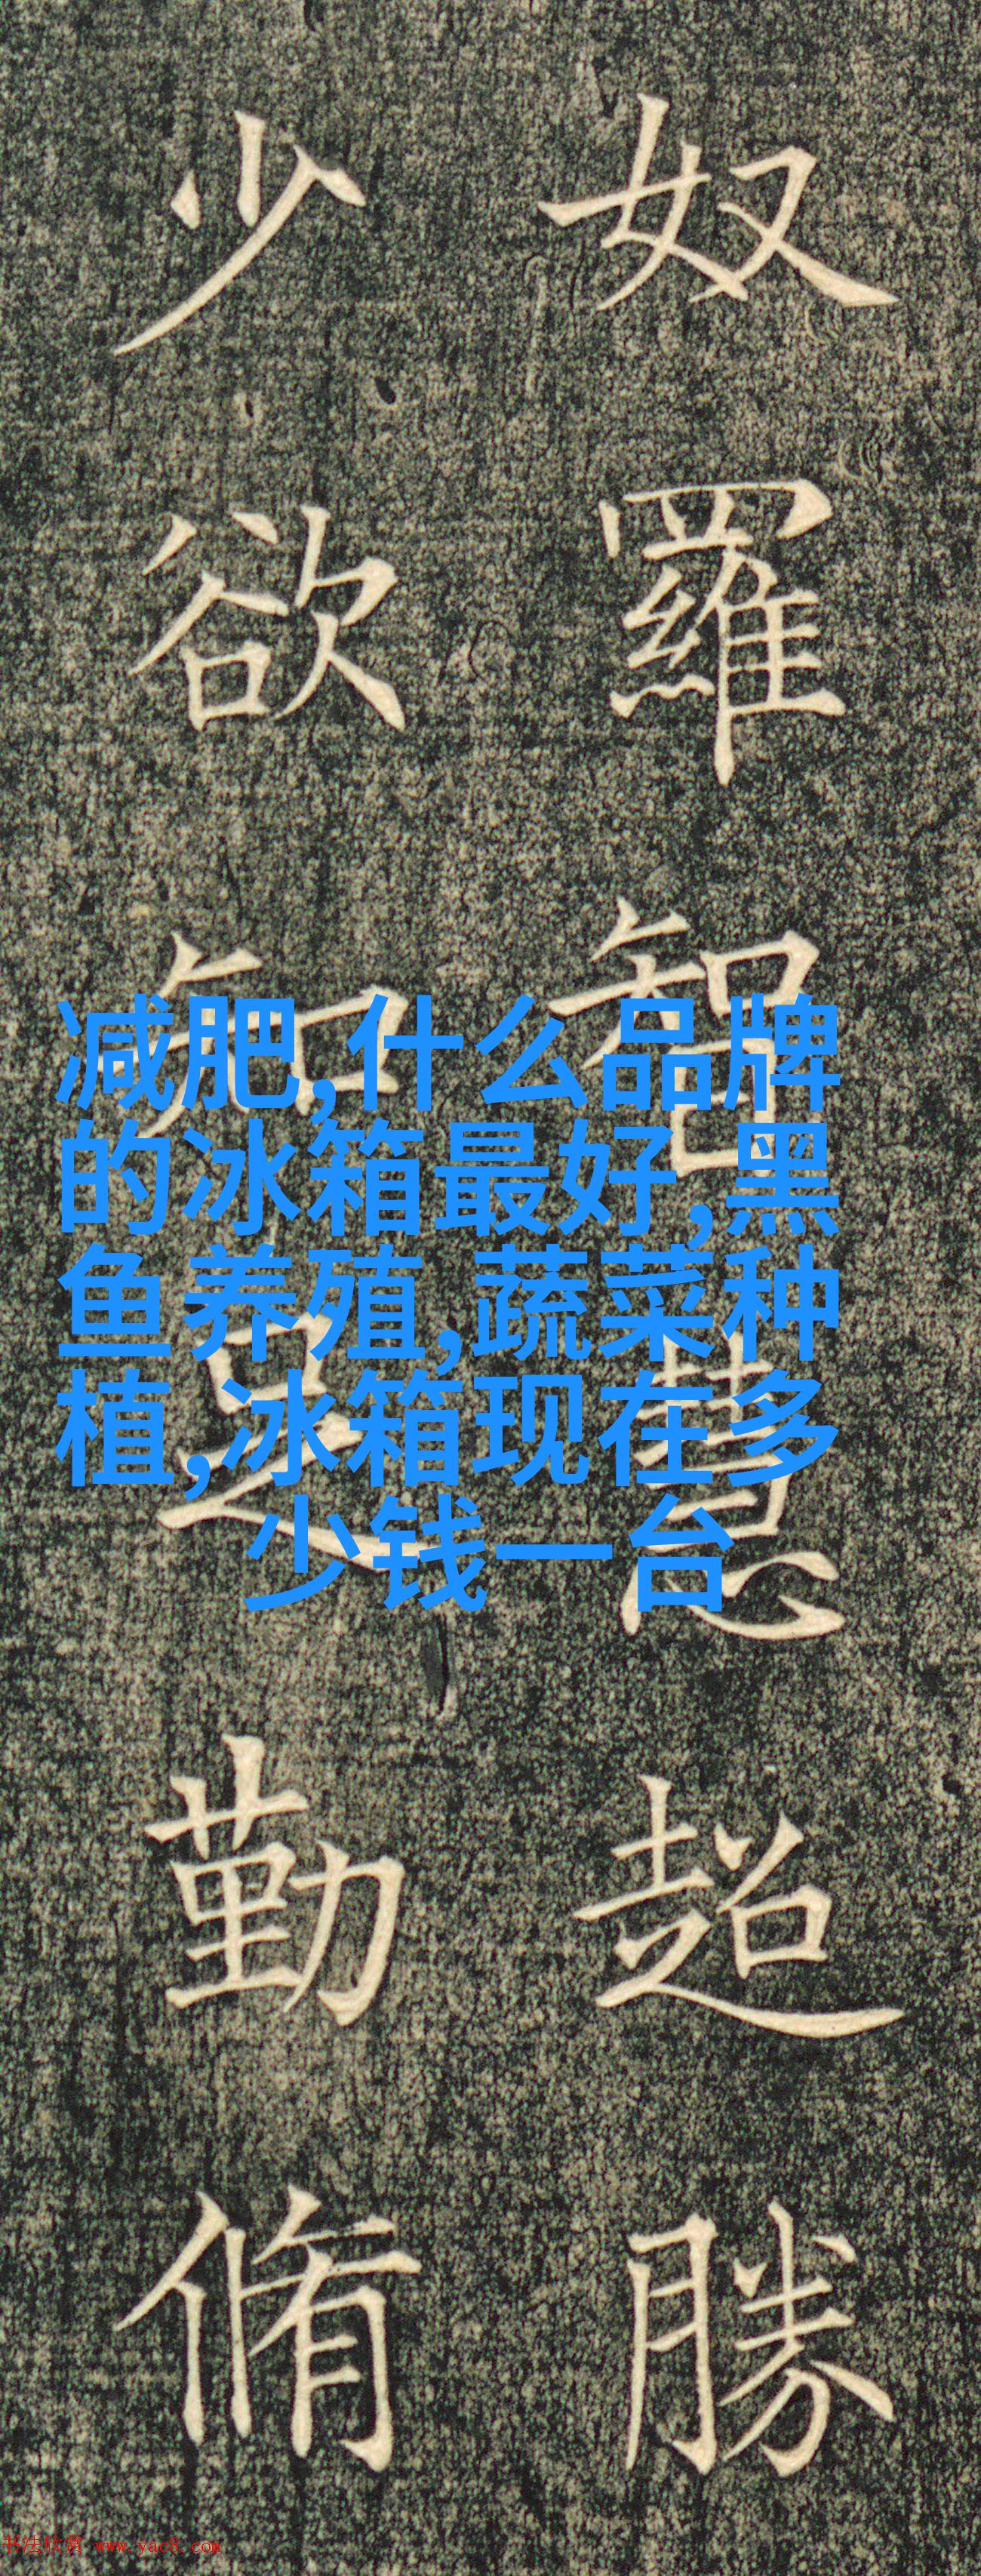 奴羅智慧超勝
少欲知足勤脩
减肥,什么品牌
的冰箱最好,黑
鱼养殖,蔬菜种
植,冰箱现在多
少钱一台
书法欣赏 www.yac8.com